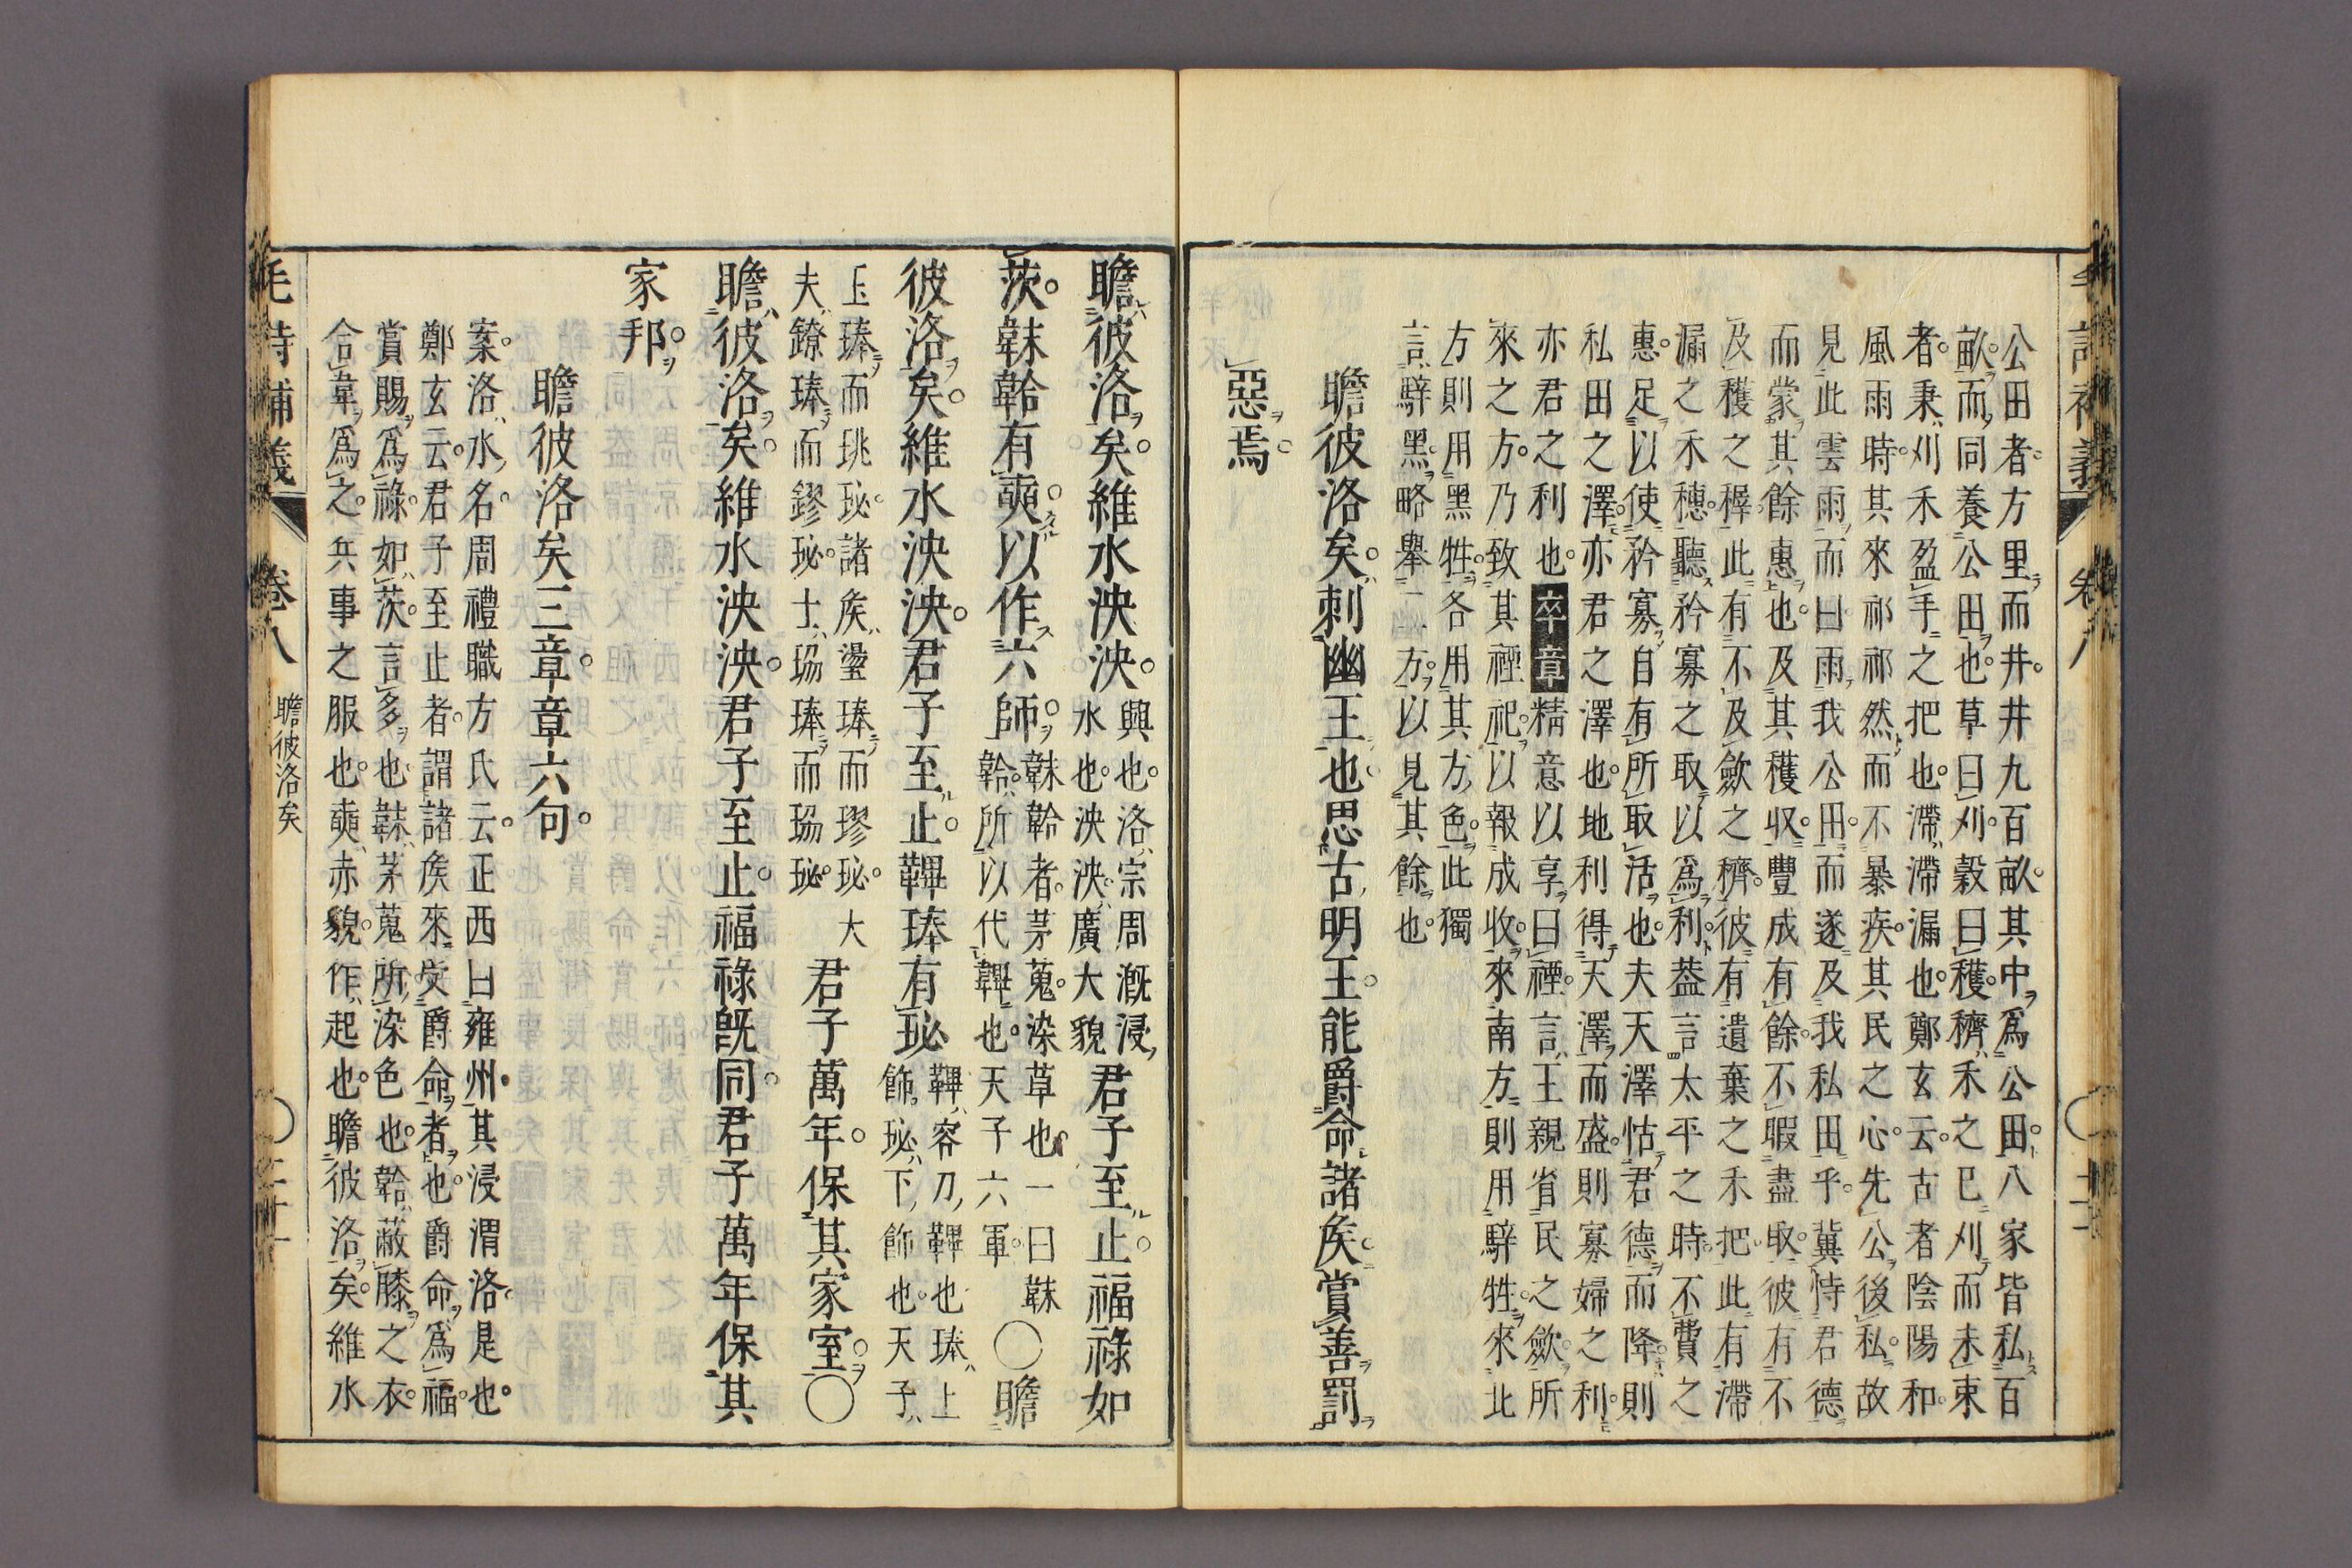 公田者方里而井井九百畝其中爲公田八家皆私百
畝而同養公田也草曰刈穀曰穫穧禾之已刈而未束
者秉刈禾盈手之把也滯滯漏也鄭玄云古者陰陽和
風雨時其來祁祁然而不暴疾其民之心先公後私故
見此雲雨而曰雨我公田而遂及我私田乎冀恃君德
而蒙其餘惠也及其穫収豐成有餘不暇盡取彼有不
及穫之穉此有不及歛之穧彼有遺棄之禾把此有滯
漏之禾穗聽矜寡之取以爲利葢言太平之時不費之
惠足以使矜寡自有所取活也夫天澤怙君德而降則
私田之澤亦君之澤也地利得天澤而盛則寡婦之利
亦君之利也卒章精意以享曰禋言王親省民之歛所
來之方乃致其禋祀以報成收來南方則用騂牲來北
方則用黑牲各用其方色此獨
言騂黑略舉二方以見其餘也
瞻彼洛矣刺幽王也思古明王能爵命諸矦賞善罰
惡焉
毛詩補義 卷八
瞻彼洛矣維水泱泱興也洛宗周漑浸水也泱泱廣大貌君子至止福祿如
茨韎韐有奭以作六師韎韐者茅蒐染草也一曰韎韐所以代韠也天子六軍〇瞻
彼洛矣維水泱泱君子至止鞞琫有珌鞞容刀鞞也琫上飾珌下飾也天子
玉琫而珧珌諸矦璗琫而璆珌大夫鐐琫而鏐珌士珕琫而珕珌君子萬年保其家室〇
瞻彼洛矣維水泱泱君子至止福祿旣同君子萬年保其
家邦
瞻彼洛矣三章章六句
案洛水名周禮職方氏云正西曰雍州其浸渭洛是也
鄭玄云君子至止者謂諸矦來受爵命者也爵命爲福
賞賜爲祿如茨言多也韎茅蒐所染色也韐蔽膝之衣
合韋爲之兵事之服也奭赤貌作起也瞻彼洛矣維水
毛詩補義 卷八 瞻彼洛矣